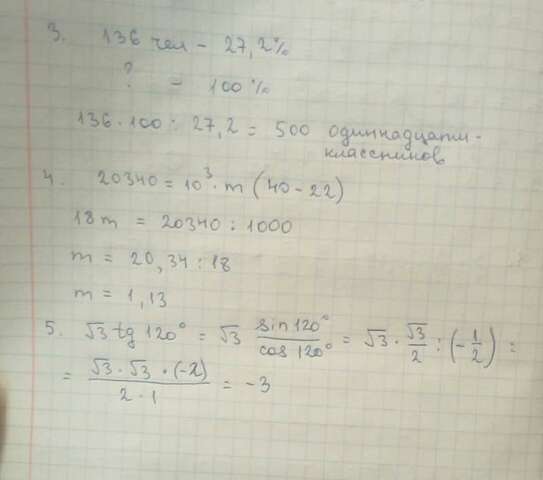 3. 136 чел - 27,2%
? - 100%
136·100 : 27,2 = 500 одиннадцати-
классников
4. 20340 = 10³·m (40-22)
18m = 20340 : 1000
m = 20,34 : 18
m = 1,13
5. √3 tg 120° = √3 sin120°/cos120° = √3 · √3/2 : (-1/2) =
= √3·√3·(-2)/2·1 = -3